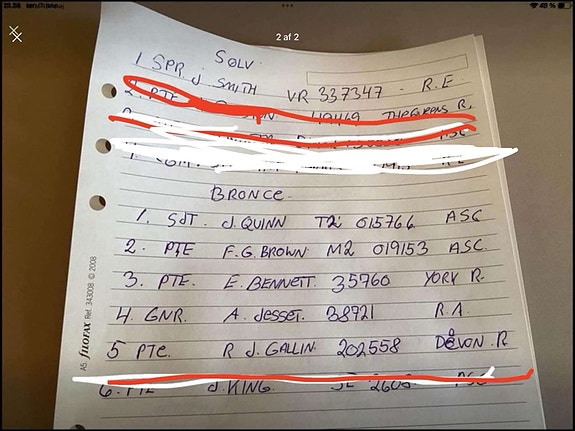 2 af 2
SOLV
1 SPR. J SMITH VR 337347 - R.E
2. PTE THE GREENS R.
BRONCE
1. SJT. J. QUINN T2 015766 ASC
2. PTE F.G. BROWN M2 019153 ASC.
3. PTE. E. BENNETT. 35760 YORK R.
4. GNR. A. JESSET. 38721 R.A.
5 PTE. R J. GALLIN 202558 DEVON. R
6. PTE J. KING SE 2605 ASC
A5 FILOFAX Ref. 343008 © 2008